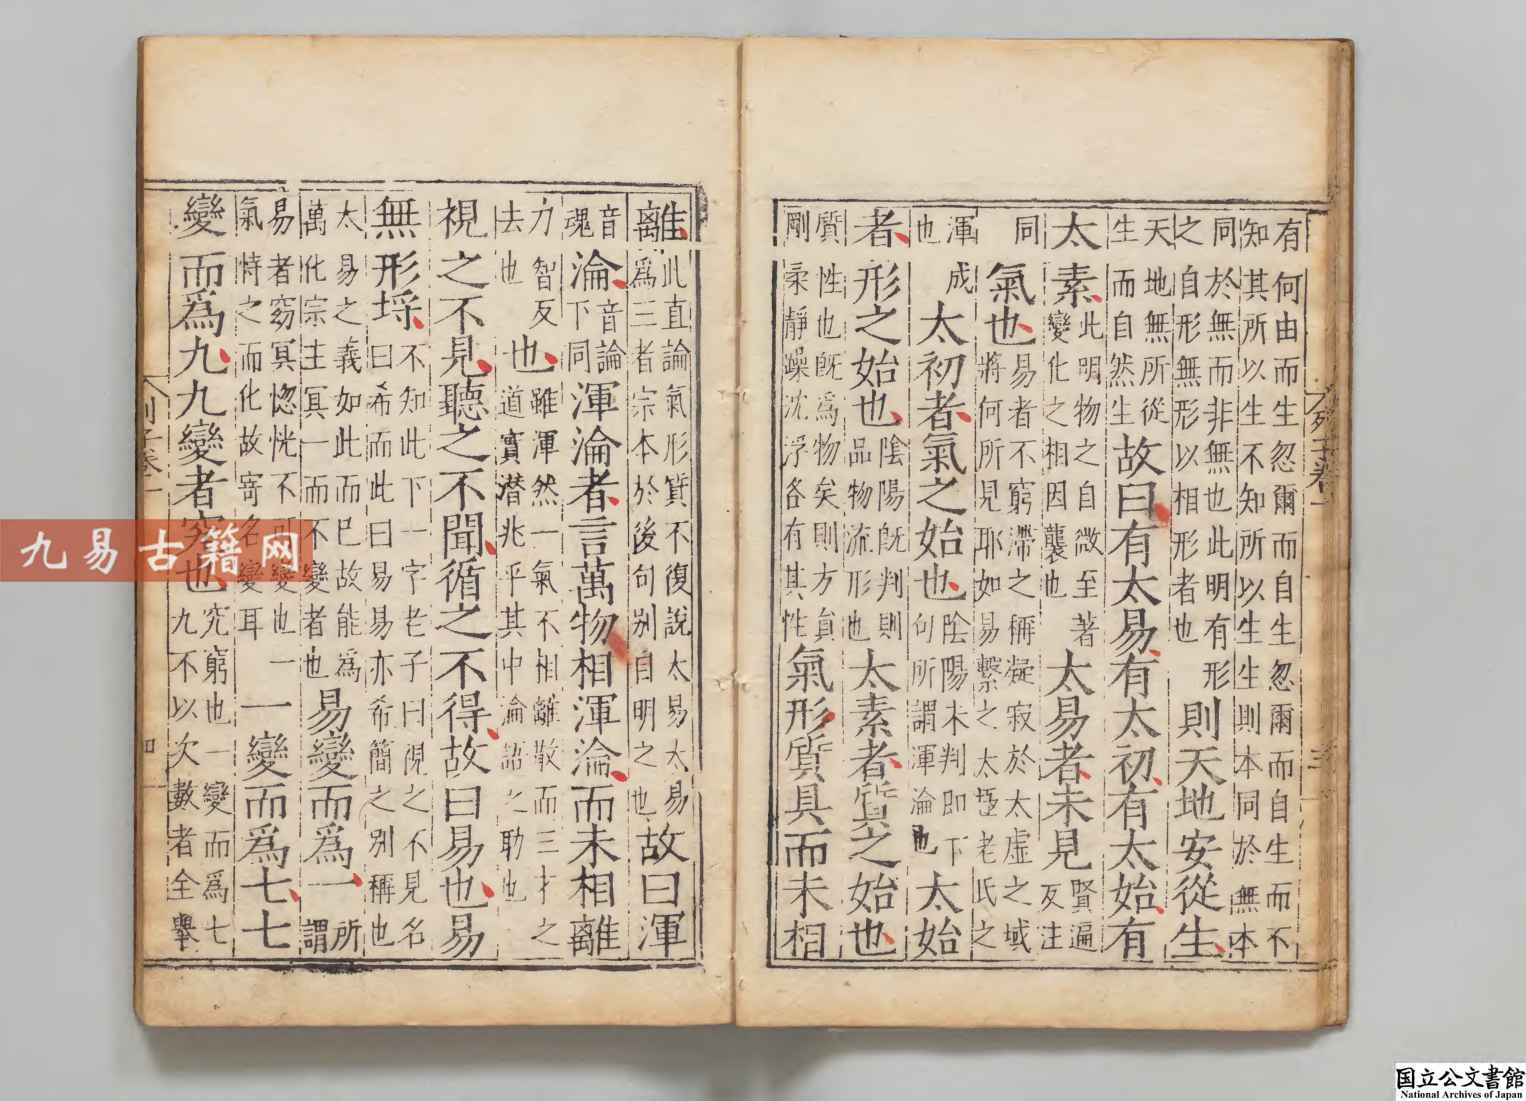 有何由而生忽爾而自生忽爾而自生而不
知其所以生不知所以生生則本同於無本
同於無而非無也此明有形
之自形無形以相形者也
則天地安從生
天地無所從
生而自然生
故曰有太易有太初有太始有
太素
此明物之自微至著
變化之相因襲也
太易者未見
賢遍
反注
同
氣也
易者不窮滯之稱凝寂於太虛之域
將何所見耶如易繫之太極老氏之
渾成
也
太初者氣之始也
陰陽未判即下
句所謂渾淪也
太始
者形之始也
陰陽既判則
品物流形也
太素者質之始也
質性也既爲物矣則方員
剛柔靜躁沈浮各有其性
氣形質具而未相
離
此直論氣形質不復說太易太易
爲三者宗本於後句別自明之也
故曰渾
音
魂
淪
音論
下同
渾淪者言萬物相渾淪而未相離
力智反
去也
也
雖渾然一氣不相離散而三才之
道實潛兆乎其中淪語之助也
視之不見聽之不聞循之不得故曰易也易
無形埒
不知此下一字老子曰視之不見名
曰希而此曰易易亦希簡之別稱也
太易之義如此而已故能爲
萬化宗主冥一而不變者也
易變而爲一
所
謂
易者窈冥惚恍不可變也一
氣恃之而化故寄名變耳
一變而爲七七
變而爲九九變者究也
究窮也一變而爲七
九不以次數者全舉
列子卷一
四
九易古籍网
国立公文書館
National Archives of Japan